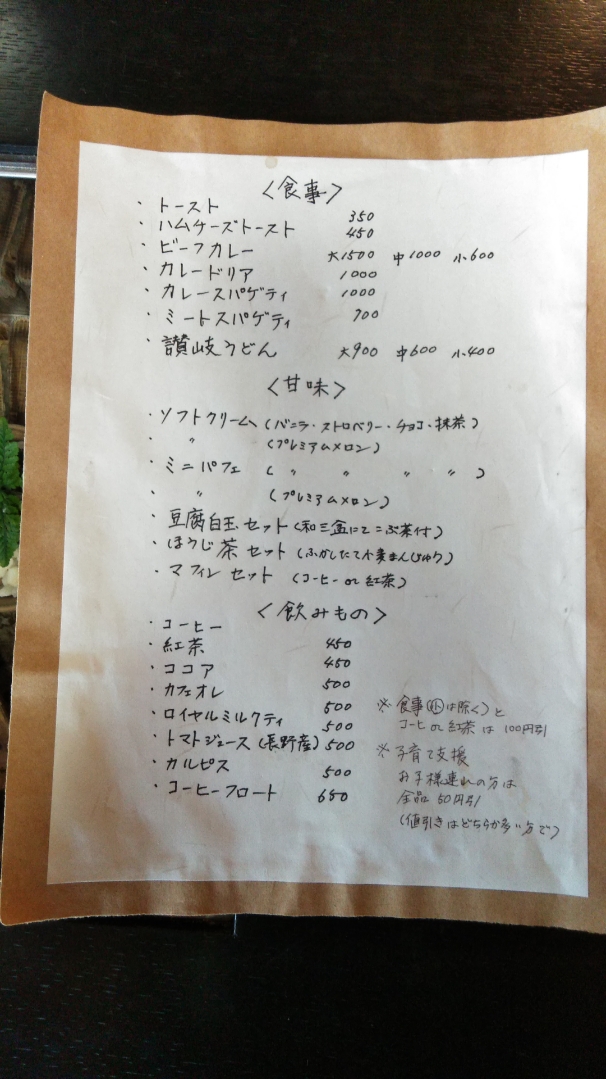 〈食事〉
・トースト 350
・ハムチーズトースト 450
・ビーフカレー 大1500 中1000 小600
・カレードリア 1000
・カレースパゲティ 1000
・ミートスパゲティ 700
・讃岐うどん 大900 中600 小400
〈甘味〉
・ソフトクリーム(バニラ・ストロベリー・チョコ・抹茶)
・ 〃 (プレミアムメロン)
・ミニパフェ ( 〃 〃 〃 〃 )
・ 〃 (プレミアムメロン)
・豆腐白玉セット(和三盆にてこぶ茶付)
・ほうじ茶セット(ふかしたて小麦まんじゅう)
・マフィンセット (コーヒー or 紅茶)
〈飲みもの〉
・コーヒー 450
・紅茶 450
・ココア 500
・カフェオレ 500
・ロイヤルミルクティ 500
・トマトジュース(長野産) 500
・カルピス 500
・コーヒーフロート 650
※食事(小は除く)と
コーヒ or 紅茶は 100円引
※子育て支援
お子様連れの方は
全品50円引
(値引きはどちらか多い方で)